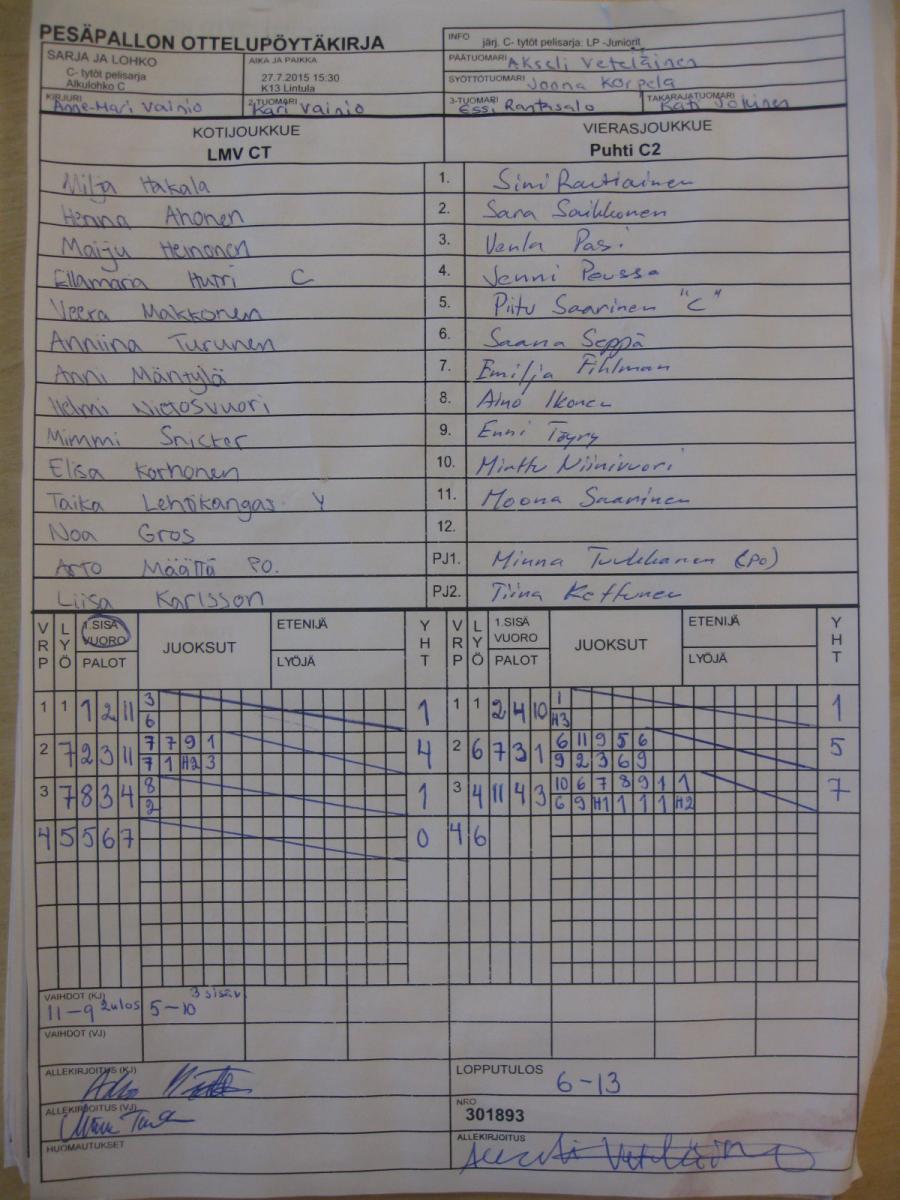 PESÄPALLON OTTELUPÖYTÄKIRJA
INFO järj. C- tytöt pelisarja: LP -Juniorit
SARJA JA LOHKO
C- tytöt pelisarja
Alkulohko C
AIKA JA PAIKKA
27.7.2015 15:30
K13 Lintula
PÄÄTUOMARI Akseli Veteläinen
SYÖTTÖTUOMARI Joona Korpela
KIRJURI Anne-Mari Vainio
2-TUOMARI Kari Vainio
3-TUOMARI Essi Rantasalo
TAKARAJATUOMARI Kati Jokinen
KOTIJOUKKUE
LMV CT
VIERASJOUKKUE
Puhti C2
Milja Hakala 1. Sini Rautiainen
Henna Ahonen 2. Sara Saikkonen
Maiju Heinonen 3. Venla Pasi
Ellamaria Hurri C 4. Jenni Peussa
Veera Makkonen 5. Piitu Saarinen "C"
Anniina Turunen 6. Saana Seppä
Anni Mäntylä 7. Emilja Fihlman
Helmi Nietosvuori 8. Aino Ikonen
Mimmi Snicker 9. Enni Töyry
Elisa Korhonen 10. Minttu Niinivuori
Taika Lehtikangas Y 11. Moona Saarinen
Noa Gros 12.
Arto Määttä PO. PJ1. Minna Tuukkanen (PO)
Liisa Karlsson PJ2. Tiina Kettunen
VRP LYÖ 1.SISÄ VUORO PALOT JUOKSUT ETENIJÄ LYÖJÄ YHT VRP LYÖ 1.SISÄ VUORO PALOT JUOKSUT ETENIJÄ LYÖJÄ YHT
1 1 1 2 11 3 1 1 1 2 4 10 1 1
6 H3
2 7 2 3 11 7 7 9 1 4 2 6 7 3 1 6 11 9 5 6 5
7 1 H2 3 9 2 3 6 9
3 7 8 3 4 8 1 3 4 11 4 3 10 6 7 8 9 1 1 7
2 6 9 H1 1 1 1 H2
4 5 5 6 7 0 4 6
VAIHDOT (KJ) 11-9 2ulos 5-10 3 sisäv
VAIHDOT (VJ)
ALLEKIRJOITUS (KJ)
LOPPUTULOS 6-13
ALLEKIRJOITUS (VJ)
NRO
301893
HUOMAUTUKSET
ALLEKIRJOITUS